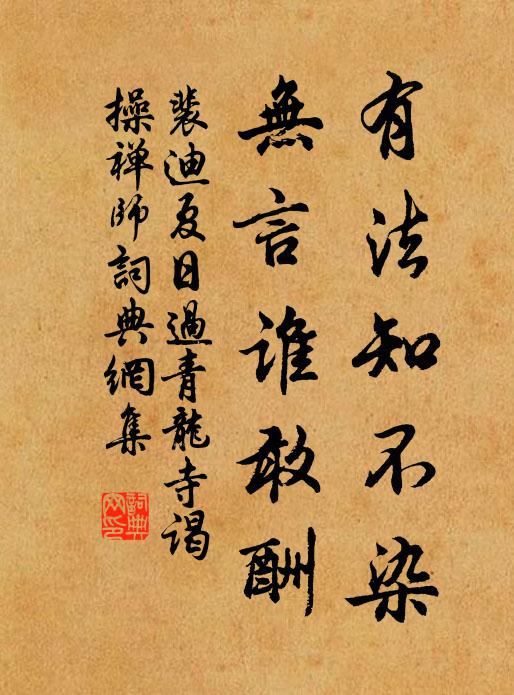 有法知不染
無言誰敢酬
裴迪夏日過青龍寺謁
操禅師詞典網集
詞典網印